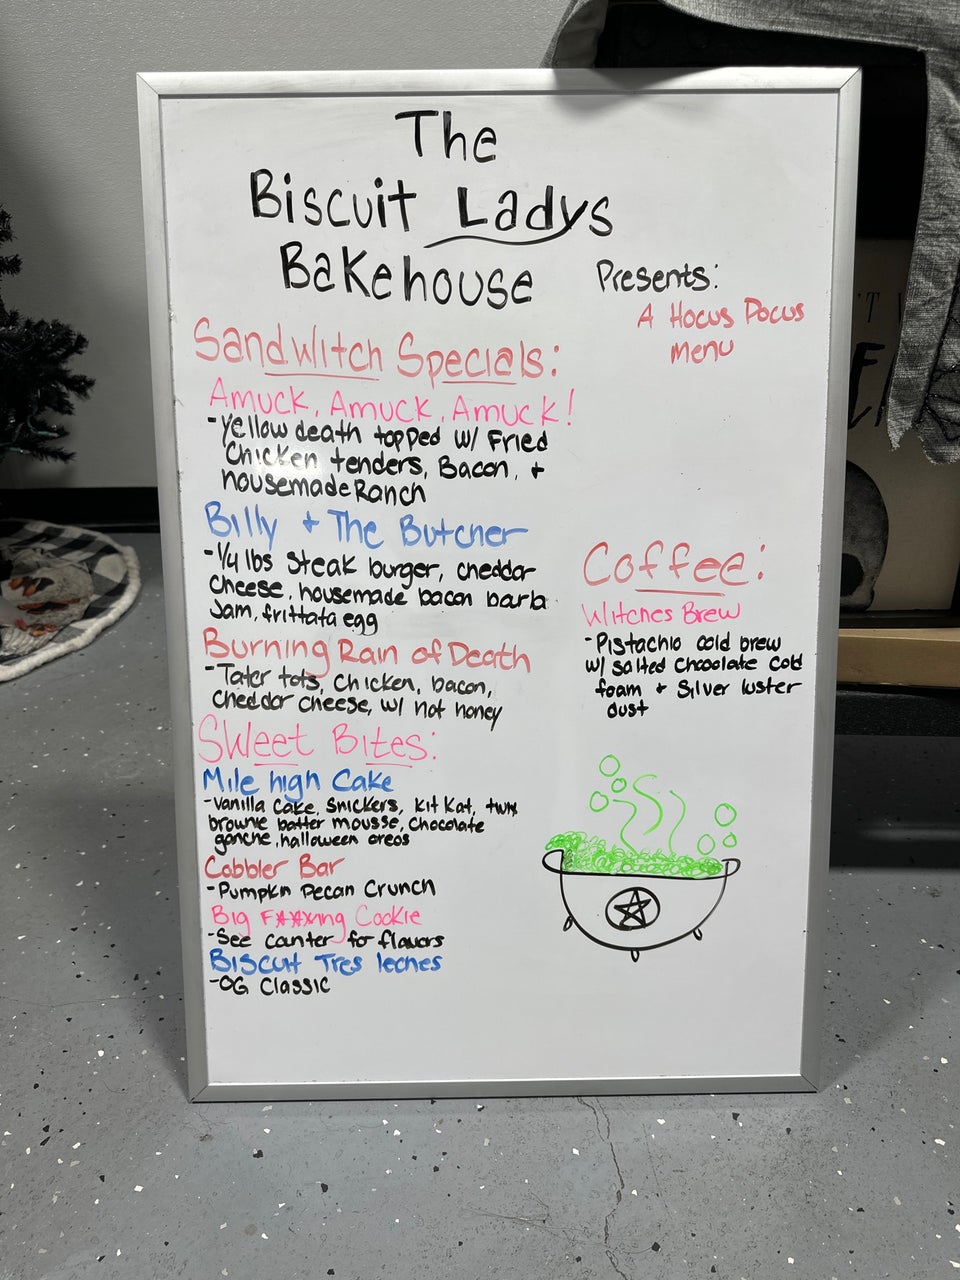 The
Biscuit Ladys
Bakehouse
Presents:
A Hocus Pocus
menu
Sandwitch Specials:
Amuck, Amuck, Amuck!
-Yellow death topped w/ Fried
Chicken tenders, Bacon, +
housemade Ranch
Billy + The Butcher
-1/4 lbs Steak burger, cheddar
cheese, housemade bacon barb
Jam, frittata egg
Burning Rain of Death
-Tater tots, chicken, bacon,
cheddar cheese, w/ hot honey
Sweet Bites:
Mile high Cake
-Vanilla Cake, Snickers, Kit Kat, twix
brownie batter mousse, Chocolate
ganche, halloween oreos
Cobbler Bar
-Pumpkn Pecan Crunch
Big F***ing Cookie
-See counter for flavors
Biscuit Tres leches
-OG Classic
Coffee:
Witches Brew
-Pistachio cold brew
w/ salted Chocolate cold
foam + Silver luster
dust